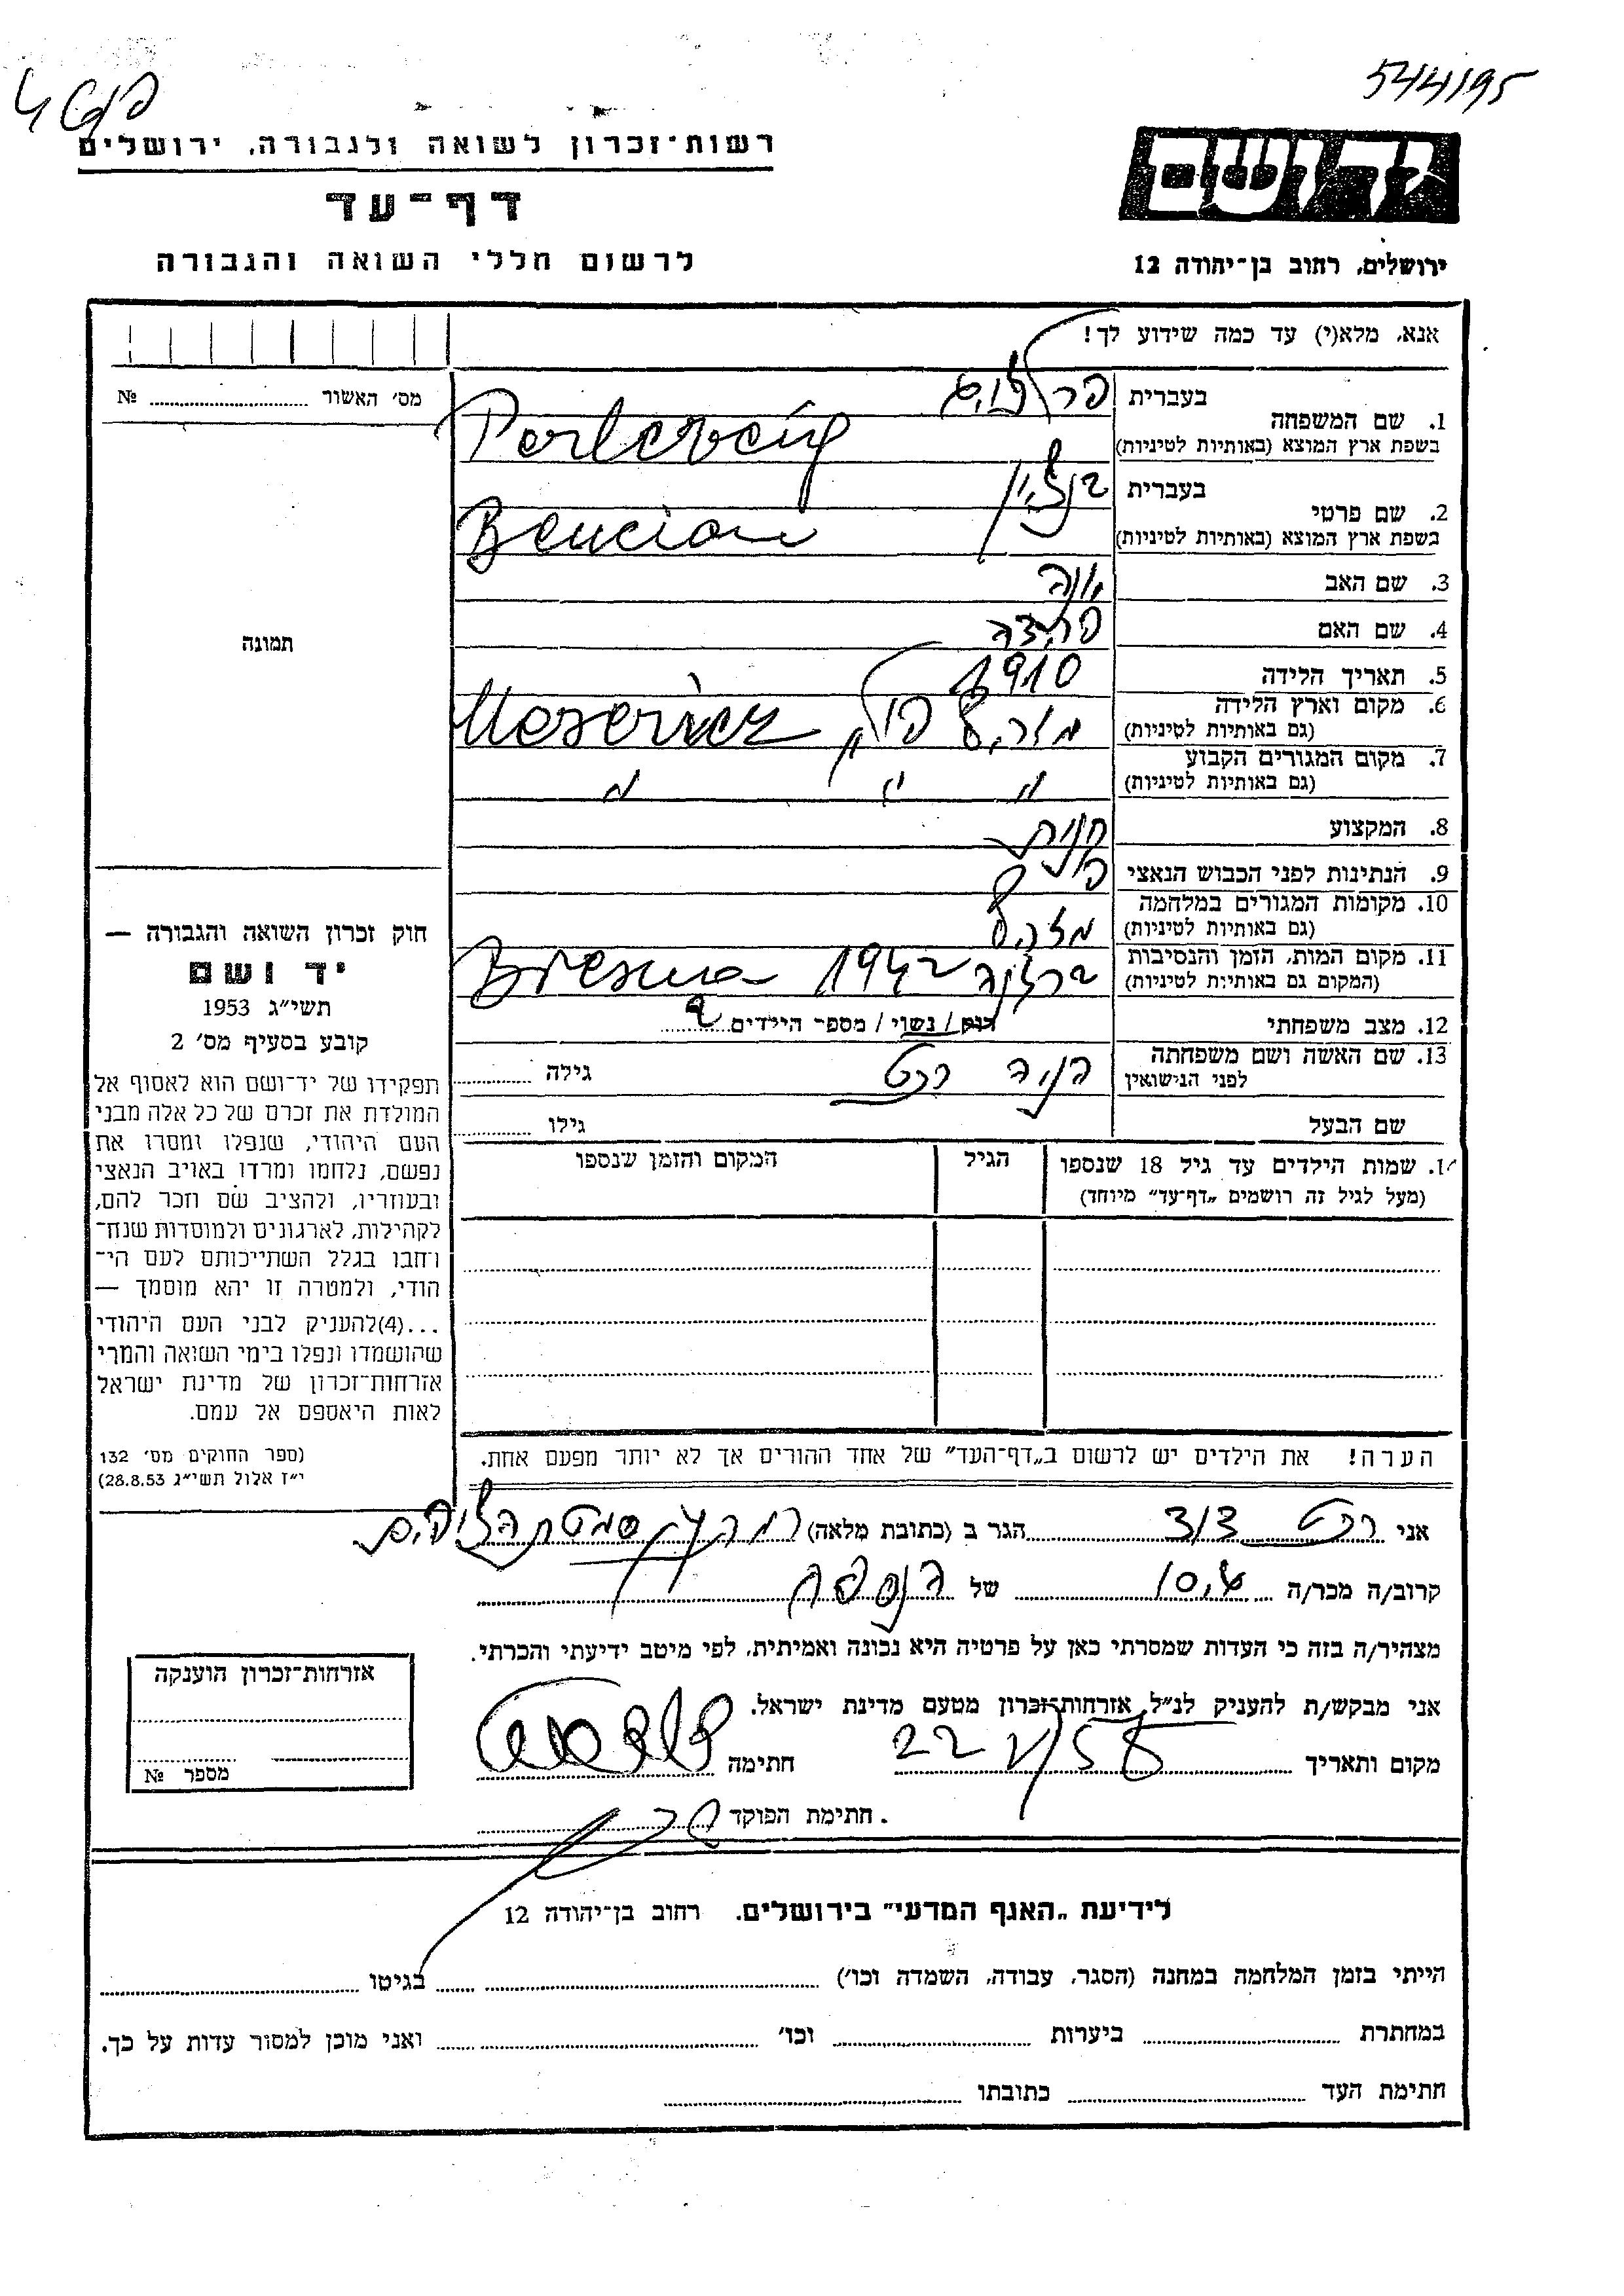 544195
רשות־זכרון לשואה ולגבורה, ירושלים
דף־עד
לרשום חללי השואה והגבורה
ירושלים, רחוב בן־יהודה 12
אנא, מלא(י) עד כמה שידוע לך!
מס׳ האשור № 
1. שם המשפחה
בעברית
בשפת ארץ המוצא (באותיות לטיניות) Perlcveig
2. שם פרטי
בעברית בנציון
בשפת ארץ המוצא (באותיות לטיניות) Bencion
3. שם האב יונה
4. שם האם פרידה
5. תאריך הלידה 1910
6. מקום וארץ הלידה
(גם באותיות לטיניות) מזריץ פולין Mesericz
7. מקום המגורים הקבוע
(גם באותיות לטיניות) " " "
8. המקצוע
9. הנתינות לפני הכבוש הנאצי
10. מקומות המגורים במלחמה
(גם באותיות לטיניות) מזריץ
11. מקום המות, הזמן והנסיבות
(המקום גם באותיות לטיניות) ברזנה 1942 Bresna
12. מצב משפחתי רוק / נשוי / מספר הילדים
13. שם האשה ושם משפחתה
לפני הנישואין גילה
שם הבעל גילו
14. שמות הילדים עד גיל 18 שנספו
(מעל לגיל זה רושמים „דף־עד״ מיוחד)
הגיל
המקום והזמן שנספו
הערה! את הילדים יש לרשום ב„דף־העד״ של אחד ההורים אך לא יותר מפעם אחת.
תמונה
חוק זכרון השואה והגבורה —
יד ושם
תשי״ג 1953
קובע בסעיף מס׳ 2
תפקידו של יד־ושם הוא לאסוף אל
המולדת את זכרם של כל אלה מבני
העם היהודי, שנפלו ומסרו את
נפשם, נלחמו ומרדו באויב הנאצי
ובעוזריו, ולהציב שם וזכר להם,
לקהילות, לארגונים ולמוסדות שנח־
רחבו בגלל השתייכותם לעם הי־
הודי, ולמטרה זו יהא מוסמך —
...(4)להעניק לבני העם היהודי
שהושמדו ונפלו בימי השואה והמרי
אזרחות־זכרון של מדינת ישראל
לאות היאספם אל עמם.
(ספר החוקים מס׳ 132
י״ז אלול תשי״ג 28.8.53)
אני הגר ב (כתובת מלאה)
קרוב/ה מכר/ה גיס של הנספה
מצהיר/ה בזה כי העדות שמסרתי כאן על פרטיה היא נכונה ואמיתית, לפי מיטב ידיעתי והכרתי.
אני מבקש/ת להעניק לנ״ל אזרחות־זכרון מטעם מדינת ישראל.
מקום ותאריך חתימה
חתימת הפוקד
אזרחות־זכרון הוענקה
מספר №
לידיעת „האגף המדעי״ בירושלים. רחוב בן־יהודה 12
הייתי בזמן המלחמה במחנה (הסגר, עבודה, השמדה וכו׳) בגיטו
במחתרת ביערות וכו׳ ואני מוכן למסור עדות על כך.
חתימת העד כתובתו